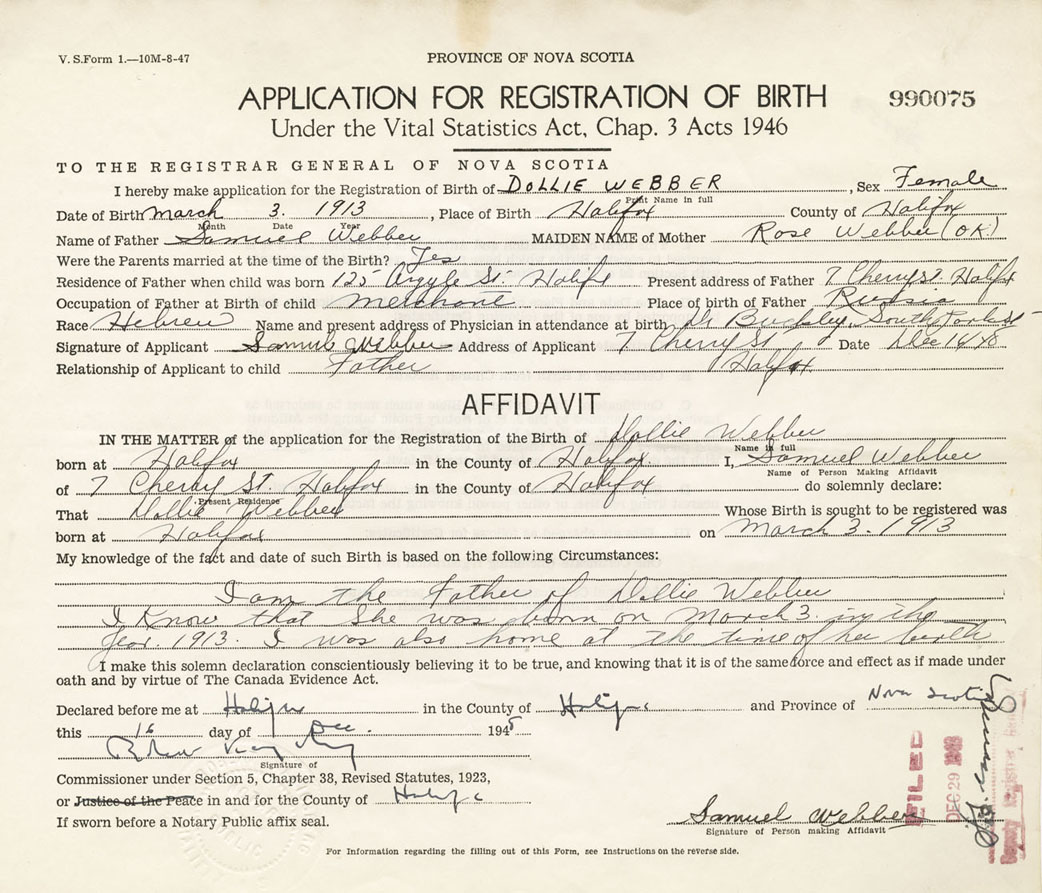 V. S.Form 1.—10M-8-47
PROVINCE OF NOVA SCOTIA
APPLICATION FOR REGISTRATION OF BIRTH
990075
Under the Vital Statistics Act, Chap. 3 Acts 1946
TO THE REGISTRAR GENERAL OF NOVA SCOTIA
I hereby make application for the Registration of Birth of DOLLIE WEBBER, Sex Female
Print Name in full
Date of Birth March 3. 1913, Place of Birth Halifax County of Halifax
Month Date Year
Name of Father Samuel Webber MAIDEN NAME of Mother Rose Webber (OK)
Were the Parents married at the time of the Birth? Yes
Residence of Father when child was born 125 Argyle St. Halifx Present address of Father 7 Cherry St. Halifx
Occupation of Father at Birth of child Place of birth of Father Russia
Race Hebrew Name and present address of Physician in attendance at birth Dr Buckley, South Park St
Signature of Applicant Samuel Webber Address of Applicant 7 Cherry St Date Dec 16/48
Relationship of Applicant to child Father Halifax
AFFIDAVIT
IN THE MATTER of the application for the Registration of the Birth of Dollie Webber
Name in full
born at Halifax in the County of Halifax. I, Samuel Webber
Name of Person Making Affidavit
of 7 Cherry St. Halifax in the County of Halifax do solemnly declare:
Present Residence
That Dollie Webber Whose Birth is sought to be registered was
born at Halifax on March 3. 1913
My knowledge of the fact and date of such Birth is based on the following Circumstances:
I am the Father of Dollie Webber
I Know that She was born on March 3 in the
Year 1913. I was also home at the time of her birth
I make this solemn declaration conscientiously believing it to be true, and knowing that it is of the same force and effect as if made under
oath and by virtue of The Canada Evidence Act.
Declared before me at Halifax in the County of Halifax and Province of Nova Scotia
this 16 day of Dec. 1948
Signature of
Commissioner under Section 5, Chapter 38, Revised Statutes, 1923,
or Justice of the Peace in and for the County of Halifax
If sworn before a Notary Public affix seal.
Samuel Webber
Signature of Person making Affidavit
FILED
DEC 29
Deputy Registrar
For Information regarding the filling out of this Form, see Instructions on the reverse side.